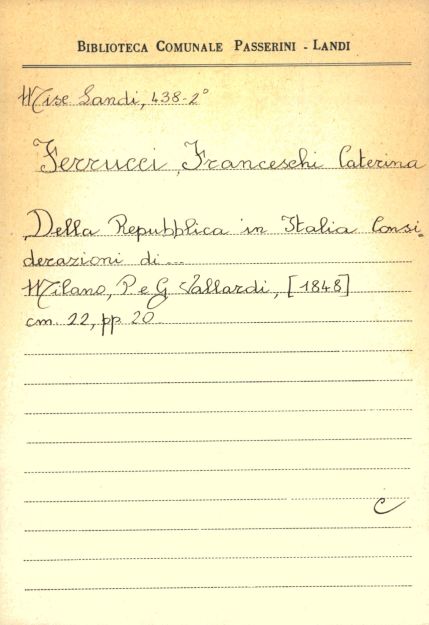 BIBLIOTECA COMUNALE PASSERINI - LANDI
Misc Landi, 438-2°
Ferrucci, Franceschi Caterina
Della Repubblica in Italia Consi-
derazioni di...
Milano, P. e G. Vallardi, [1848]
cm. 22, pp 20
C